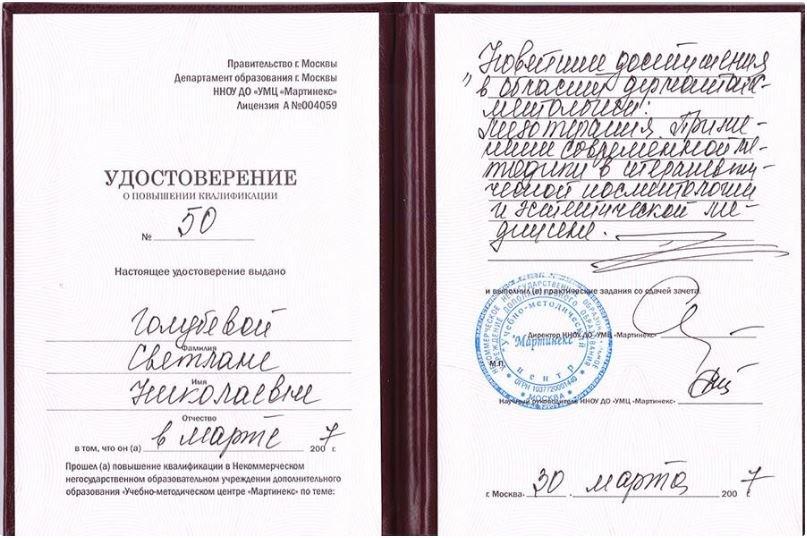 Правительство г. Москвы
Департамент образования г. Москвы
ННОУ ДО «УМЦ «Мартинекс»
Лицензия А №004059
УДОСТОВЕРЕНИЕ
О ПОВЫШЕНИИ КВАЛИФИКАЦИИ
№ 50
Настоящее удостоверение выдано
Голубевой
Фамилия
Светлане
Имя
Николаевне
Отчество
в том, что он (а) в марте 2007 г.
Прошел (а) повышение квалификации в Некоммерческом
негосударственном образовательном учреждении дополнительного
образования «Учебно-методическом центре «Мартинекс» по теме:
Новейшие достижения
в области дерматокос-
метологии:
Мезотерапия. Приме-
нение современной ме-
тодики в терапевти-
ческой косметологии
и эстетической ме-
дицине.
и выполнил (а) практические задания со сдачей зачета.
Директор ННОУ ДО «УМЦ «Мартинекс»
М.П.
Научный руководитель ННОУ ДО «УМЦ «Мартинекс»
Учебно-методический
"Мартинекс"
центр
МОСКВА
г. Москва 30 марта 2007 г.